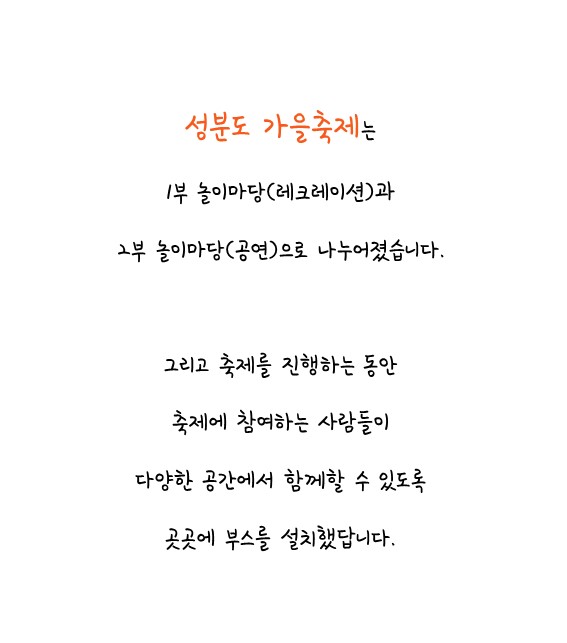 성분도 가을축제는
1부 놀이마당(레크레이션)과
2부 놀이마당(공연)으로 나누어졌습니다.
그리고 축제를 진행하는 동안
축제에 참여하는 사람들이
다양한 공간에서 함께할 수 있도록
곳곳에 부스를 설치했답니다.